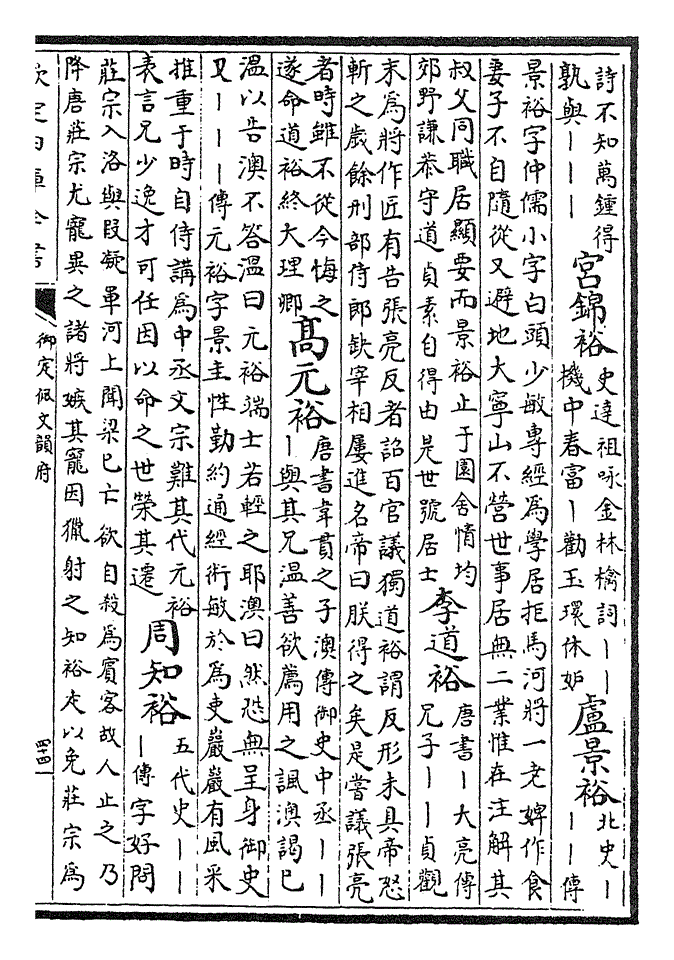 詩不知萬鍾得
孰與———
宮錦裕
史達祖咏金林檎詞——
機中春富—勸玉環休妒
盧景裕
北史—
——傳
景裕字仲儒小字白頭少敏專經爲學居拒馬河將一老婢作食
妻子不自隨從又避地大寧山不營世事居無二業惟在注解其
叔父同職居顯要而景裕止于園舍情均
郊野謙恭守道貞素自得由是世號居士
李道裕
唐書—大亮傳
兄子——貞觀
末爲將作匠有告張亮反者詔百官議獨道裕謂反形未具帝怒
斬之歲餘刑部侍郎缺宰相屢進名帝曰朕得之矣是嘗議張亮
者時雖不從今悔之
遂命道裕終大理卿
髙元裕
唐書韋貫之子澳傳御史中丞——
—與其兄溫善欲薦用之諷澳謁已
溫以告澳不答溫曰元裕端士若輕之耶澳曰然恐無呈身御史
又———傳元裕字景圭性勤約通經術敏於爲吏巖巖有風采
推重于時自侍講爲中丞文宗難其代元裕
表言兄少逸才可任因以命之世榮其遷
周知裕
五代史——
—傳字好問
莊宗入洛與段凝軍河上聞梁已亡欲自殺爲賓客故人止之乃
降唐莊宗尤寵異之諸將嫉其寵因獵射之知裕走以免莊宗爲
欽定四庫全書
御定佩文韻府
四十四